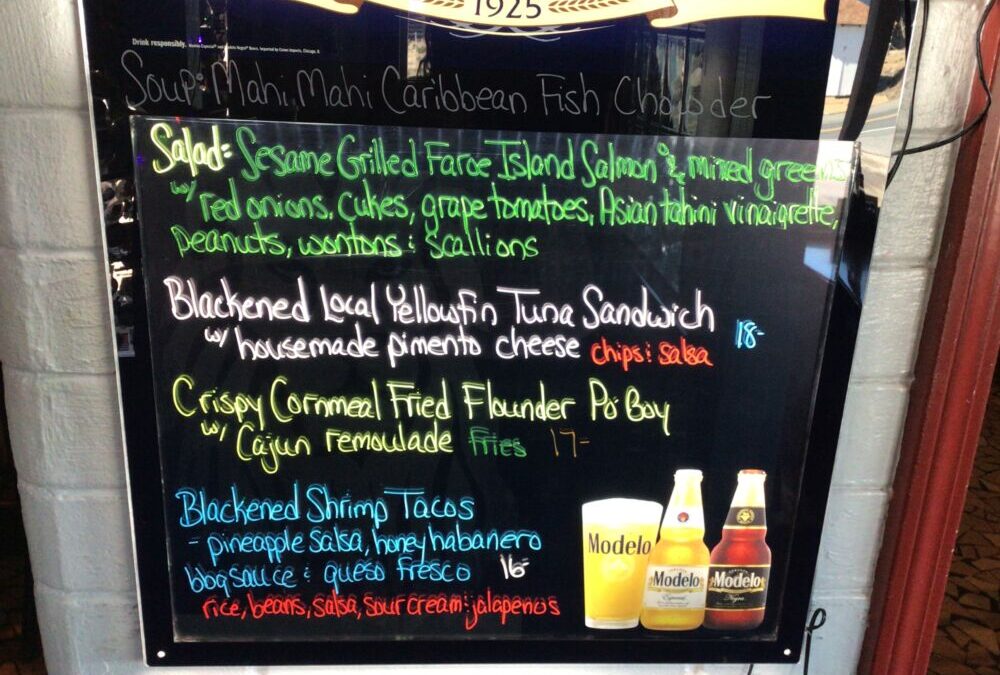 1925
Drink responsibly.
Soup: Mahi Mahi Caribbean Fish Chowder
Salad: Sesame Grilled Faroe Island Salmon & mixed greens
w/ red onions, cukes, grape tomatoes, Asian tahini vinaigrette,
peanuts, wontons & scallions
Blackened Local Yellowfin Tuna Sandwich
w/ housemade pimento cheese chips & salsa 18-
Crispy Cornmeal Fried Flounder Po Boy
w/ Cajun remoulade fries 17-
Blackened Shrimp Tacos
- pineapple salsa, honey habanero
bbq sauce & queso fresco 16-
rice, beans, salsa, sour cream & jalapenos
Modelo
Modelo
Especial
Modelo
Negra